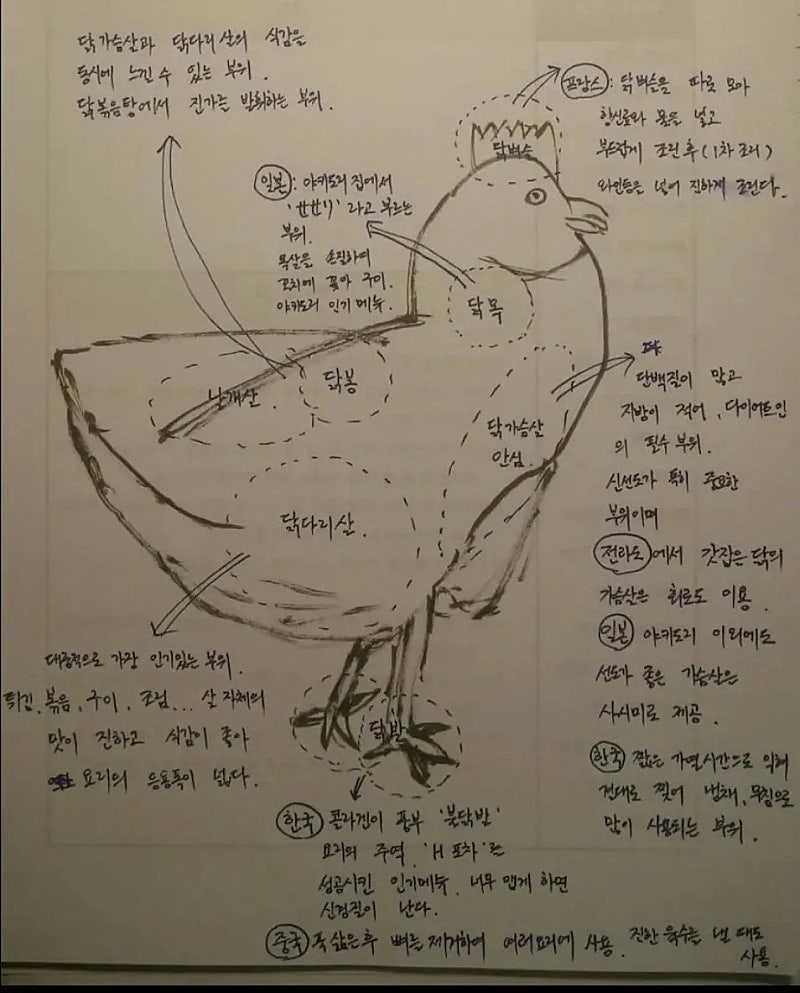 닭가슴살과 닭다리살의 식감을
동시에 느낄 수 있는 부위.
닭볶음탕에서 진가를 발휘하는 부위.
프랑스: 닭벼슬을 따로 모아
향신료와 물을 넣고
부드럽게 조린 후 (1차 조리)
와인등을 넣어 진하게 조린다.
닭벼슬
일본: 야키도리 집에서
'세세리' 라고 부르는
부위.
목살을 손질하여
꼬치에 꽂아 구이.
야키도리 인기메뉴.
닭목
날개살.
닭봉
닭가슴살
안심.
단백질이 많고
지방이 적어, 다이어트인
의 필수 부위.
신선도가 특히 중요한
부위이며
전라도에서 갓잡은 닭의
가슴살은 회로도 이용.
일본 야키도리 이외에도
선도가 좋은 가슴살은
사시미로 제공.
한국 짧은 가열시간으로 익혀
건대로 찢어 냉채, 무침으로
많이 사용되는 부위.
닭다리살.
대중적으로 가장 인기있는 부위.
튀김, 볶음, 구이, 조림... 살 자체의
맛이 진하고 식감이 좋아
요리의 응용폭이 넓다.
닭발
한국 콜라겐이 풍부 '불닭발'
요리의 주역. 'H 포차'를
성공시킨 인기메뉴. 너무 맵게 하면
신경질이 난다.
중국 푹 삶은 후 뼈를 제거하여 여러요리에 사용. 진한 육수를 낼 때도
사용.